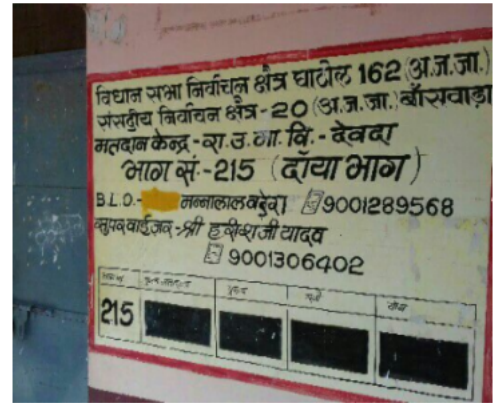 विधान सभा निर्वाचन क्षेत्र घाटोल 162 (अ.ज.जा.)
संसदीय निर्वाचन क्षेत्र-20 (अ.ज.जा.) बाँसवाड़ा
मतदान केन्द्र-रा.उ.मा.वि.- देवदा
भाग सं.-215 (दाँया भाग)
B.L.O.- मन्नालाल वडेरा 9001289568
सुपरवाईजर-श्री हरीशजी यादव
9001306402
215